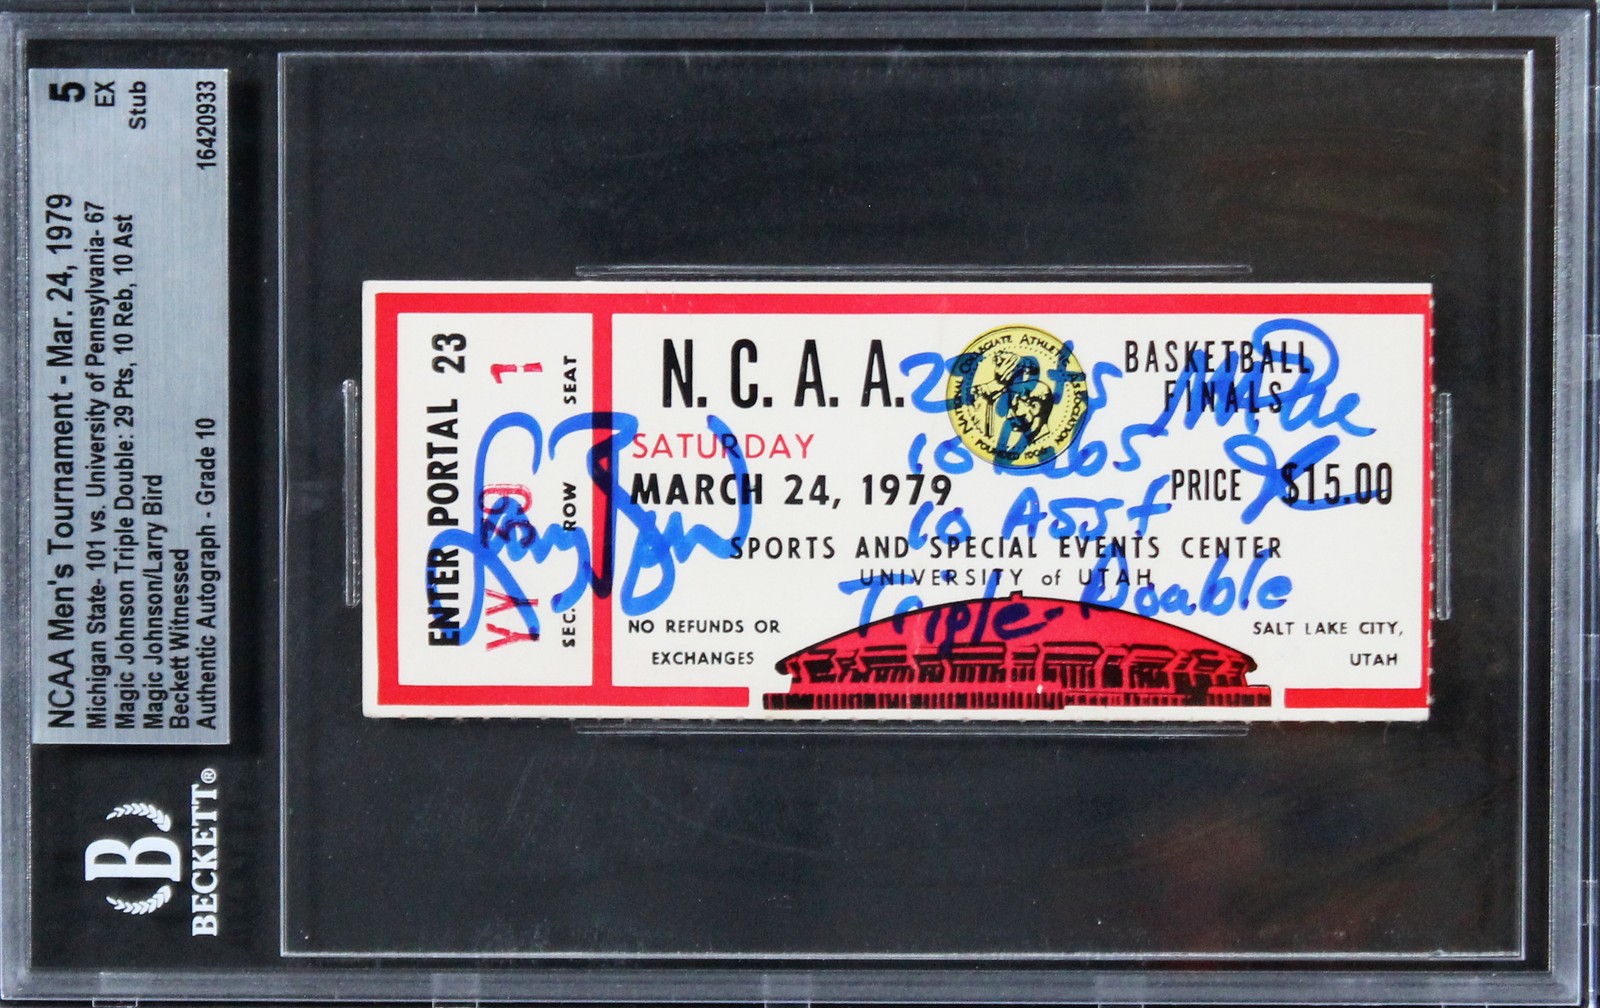 NCAA Men's Tournament - Mar. 24, 1979
Michigan State- 101 vs. University of Pennsylvania- 67
Magic Johnson Triple Double: 29 Pts, 10 Reb, 10 Ast
Magic Johnson/Larry Bird
Beckett Witnessed
Authentic Autograph - Grade 10
5
EX
Stub
16420933
B
BECKETT®
ENTER PORTAL 23
YY 39 1
SEC. ROW SEAT
N. C. A. A.
BASKETBALL
FINALS
SATURDAY
MARCH 24, 1979
PRICE $15.00
SPORTS AND SPECIAL EVENTS CENTER
UNIVERSITY of UTAH
NO REFUNDS OR
EXCHANGES
SALT LAKE CITY,
UTAH
NATIONAL COLLEGIATE ATHLETIC ASSOCIATION
FOUNDED 1906
Larry Bird
29 pts
10 Rebs
10 Asst
Triple-Double